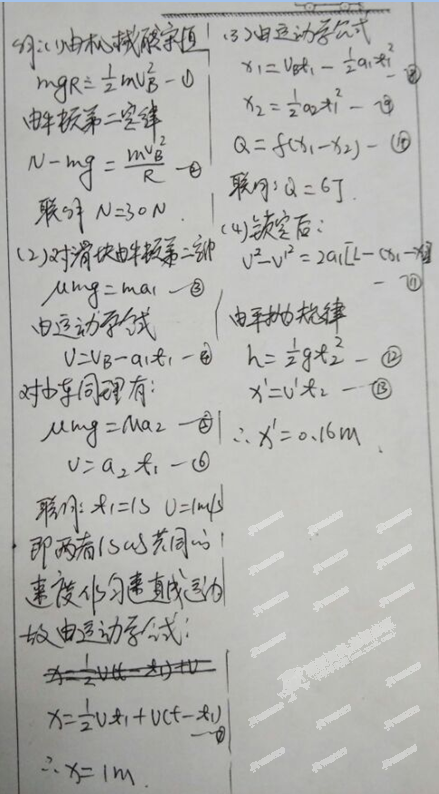 解:(1)由机械能守恒
mgR=½mv_B² —①
由牛顿第二定律
N-mg=mv_B²/R —②
联解 N=30N.
(2)对滑块由牛顿第二定律
μmg=ma₁ —③
由运动学公式
v=v_B-a₁t₁ —④
对小车同理有:
μmg=Ma₂ —⑤
v=a₂t₁ —⑥
联解: t₁=1s v=1m/s
即两者1s以共同的
速度作匀速直线运动
故由运动学公式:
x=½vt₁+v(t-t₁)
∴x=1m.
(3)由运动学公式
x₁=v_Bt₁-½a₁t₁² —⑧
x₂=½a₂t₁² —⑨
Q=f(x₁-x₂) —⑩
联解: Q=6J.
(4)锁定后:
v²-v'²=2a₁[L-(x₁-x₂)]
—⑪
由平抛规律
h=½gt₂² —⑫
x'=v't₂ —⑬
∴x'=0.16m.